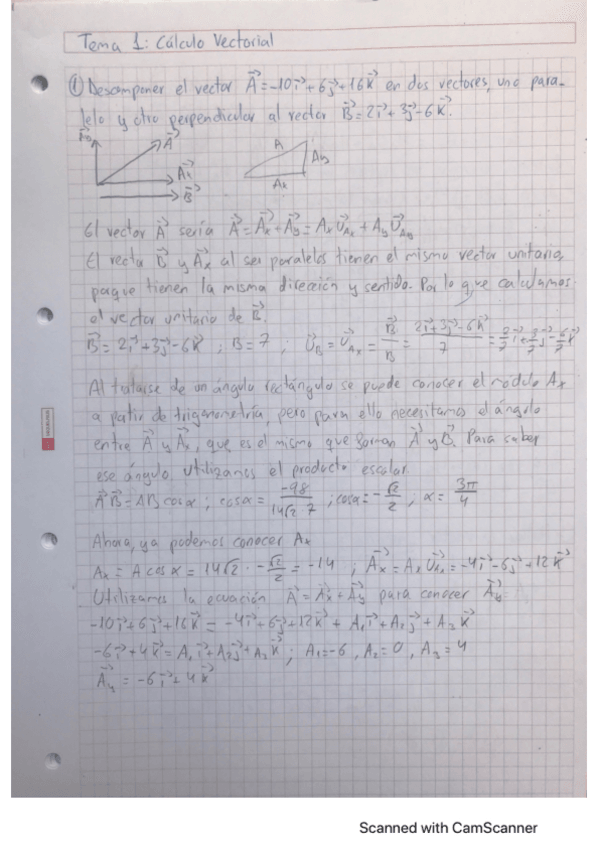 Tema 1: Cálculo Vectorial
① Descomponer el vector A⃗ = -10i⃗ + 6j⃗ + 16k⃗ en dos vectores, uno para-
lelo y otro perpendicular al vector B⃗ = 2i⃗ + 3j⃗ - 6k⃗.
A⃗
A⃗x
B⃗
A
Ay
Ax
El vector A⃗ sería A⃗ = A⃗x + A⃗y = Ax U⃗Ax + Ay U⃗Ay
El recta B⃗ y A⃗x al ser paralelos tienen el mismo vector unitario,
porque tienen la misma dirección y sentido. Por lo que calculamos
el vector unitario de B⃗.
B⃗ = 2i⃗ + 3j⃗ - 6k⃗ ; B = 7 ; U⃗B = U⃗Ax = B⃗/B = (2i⃗ + 3j⃗ - 6k⃗)/7 = 2/7 i⃗ + 3/7 j⃗ - 6/7 k⃗
Al tratarse de un ángulo rectángulo se puede conocer el módulo Ax
a patir de trigonometría, pero para ello necesitamos el ángulo
entre A⃗ y A⃗x, que es el mismo que forman A⃗ y B⃗. Para saber
ese ángulo utilizamos el producto escalar
A⃗ B⃗ = AB cos α ; cos α = -98/(14√2·7) ; cos α = -√2/2 ; α = 3π/4
Ahora, ya podemos conocer Ax
Ax = A cos α = 14√2 · -√2/2 = -14 ; A⃗x = Ax U⃗Ax = -4i⃗ - 6j⃗ + 12k⃗
Utilizamos la ecuación A⃗ = A⃗x + A⃗y para conocer A⃗y:
-10i⃗ + 6j⃗ + 16k⃗ = -4i⃗ + 6j⃗ + 12k⃗ + A₁i⃗ + A₂j⃗ + A₃k⃗
-6i⃗ + 4k⃗ = A₁i⃗ + A₂j⃗ + A₃k⃗ ; A₁ = -6 , A₂ = 0 , A₃ = 4
A⃗y = -6i⃗ + 4k⃗
Scanned with CamScanner